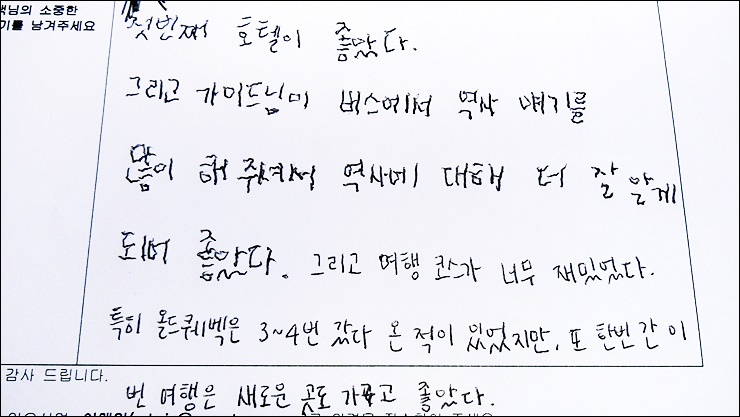 객님의 소중한
기를 남겨주세요
첫번째 호텔이 좋았다.
그리고 가이드님이 버스에서 역사 얘기를
많이 해 주셔서 역사에 대해 더 잘 알게
되어 좋았다. 그리고 여행 코스가 너무 재밌었다.
특히 올드퀘벡은 3~4번 갔다 온 적이 있었지만, 또 한번 간 이
감사 드립니다.
번 여행은 새로운 곳도 가고 좋았다.